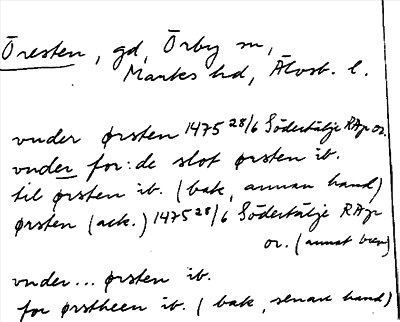 Öresten, gd, Örby sn,
Marks hd, Älvsb. l.
vnder ørsten 1475 28/6 Södertälje RAp or.
vnder for:de slot ørsten ib.
til ørsten ib. (bak, annan hand)
ørsten (ack.) 1475 28/6 Södertälje RAp
or. (annat brev)
vnder... ørsten ib.
for ørstheen ib. (bak, senare hand)